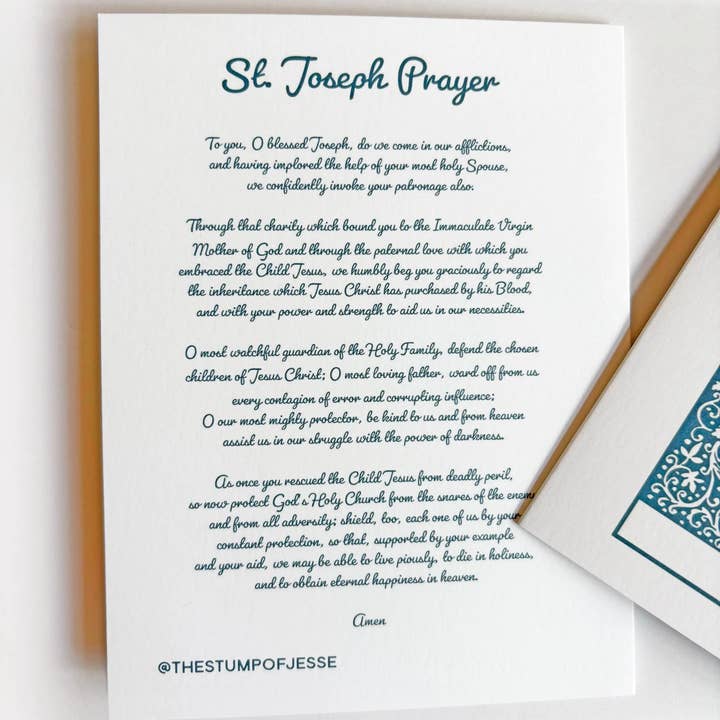 St. Joseph Prayer
To you, O blessed Joseph, do we come in our afflictions,
and having implored the help of your most holy Spouse,
we confidently invoke your patronage also.
Through that charity which bound you to the Immaculate Virgin
Mother of God and through the paternal love with which you
embraced the Child Jesus, we humbly beg you graciously to regard
the inheritance which Jesus Christ has purchased by his Blood,
and with your power and strength to aid us in our necessities.
O most watchful guardian of the Holy Family, defend the chosen
children of Jesus Christ; O most loving father, ward off from us
every contagion of error and corrupting influence;
O our most mighty protector, be kind to us and from heaven
assist us in our struggle with the power of darkness.
As once you rescued the Child Jesus from deadly peril,
so now protect God's Holy Church from the snares of the enemy
and from all adversity; shield, too, each one of us by your
constant protection, so that, supported by your example
and your aid, we may be able to live piously, to die in holiness,
and to obtain eternal happiness in heaven.
Amen
@THESTUMPOFJESSE